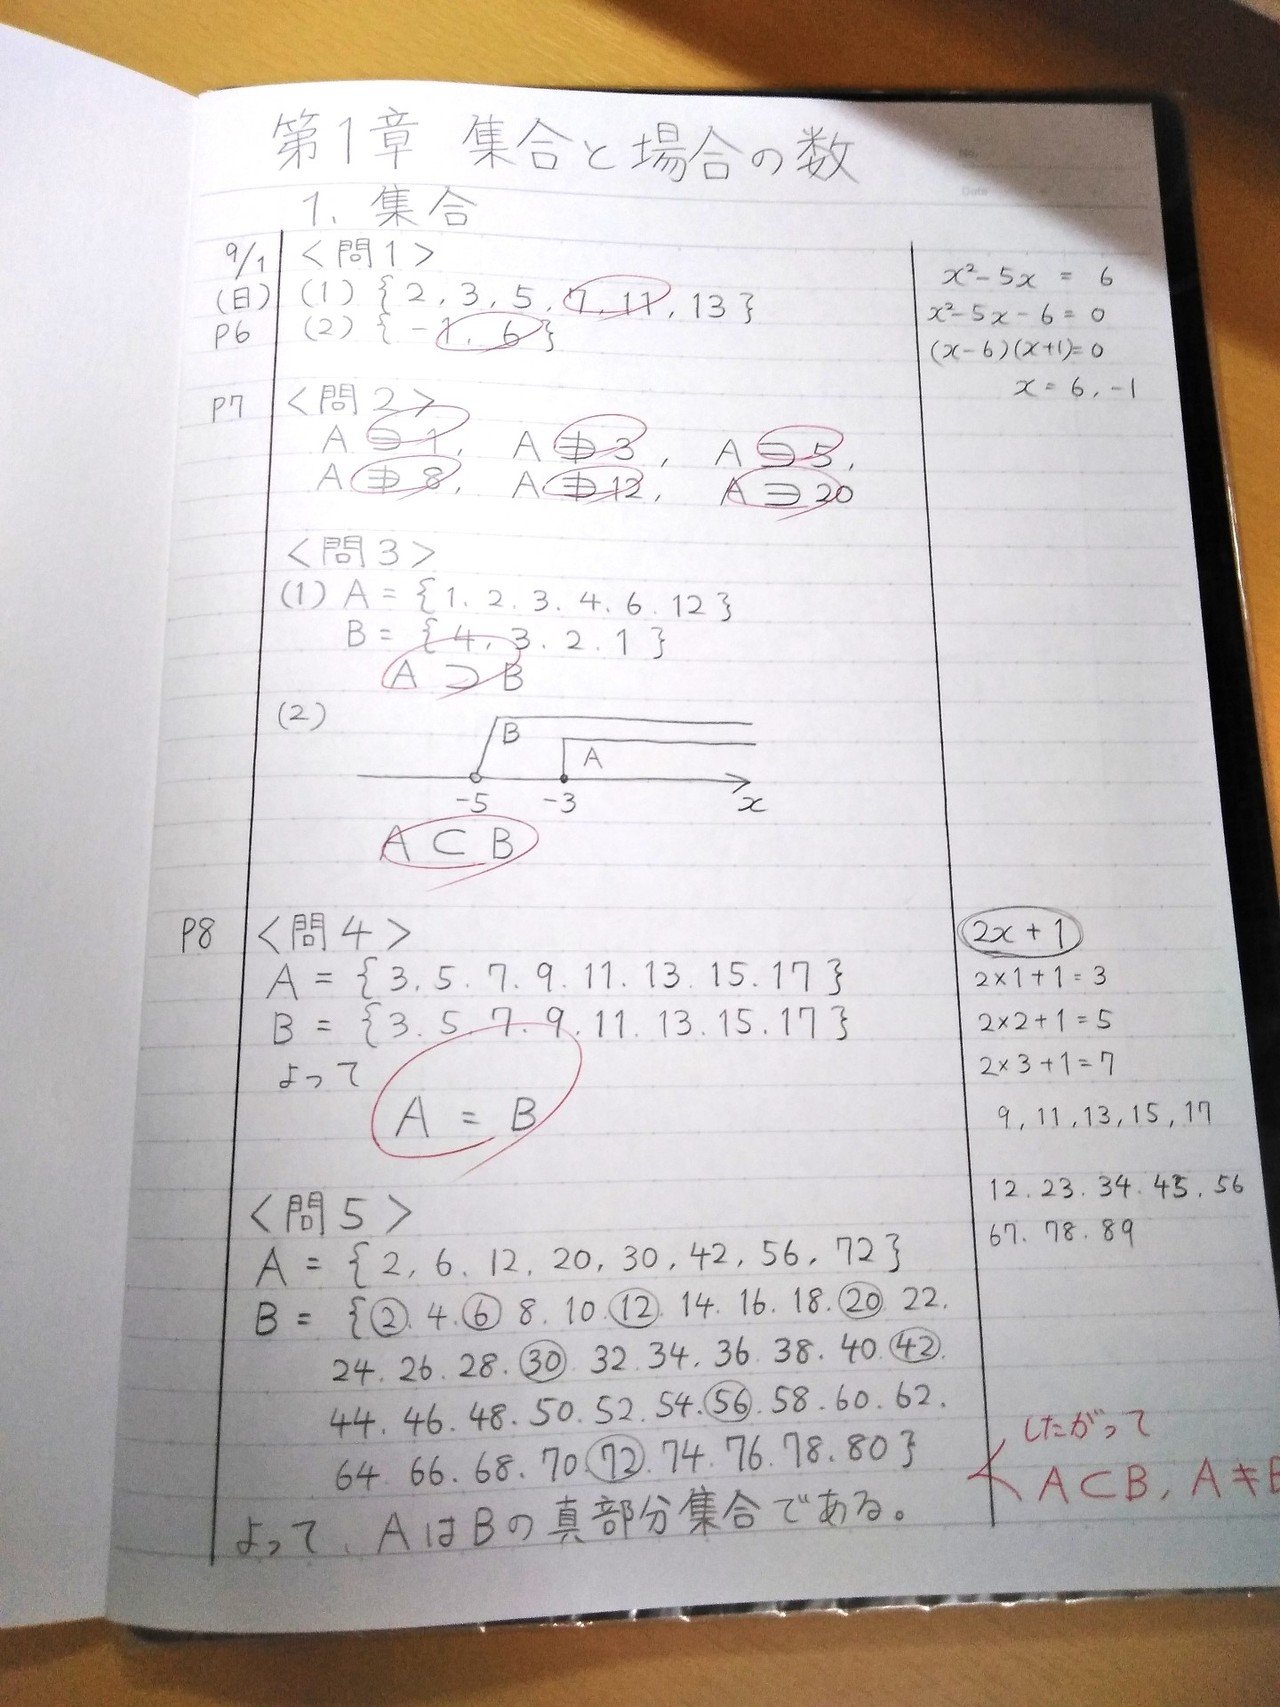 第1章 集合と場合の数
1. 集合
9/1 <問1>
(日) (1) { 2, 3, 5, 7, 11, 13 }
P6 (2) { -1, 6 }
x²-5x = 6
x²-5x-6=0
(x-6)(x+1)=0
x=6,-1
P7 <問2>
A ∋ 1, A ∌ 3, A ∋ 5,
A ∌ 8, A ∌ 12, A ∋ 20
<問3>
(1) A = { 1. 2. 3. 4. 6. 12 }
B = { 4, 3. 2. 1 }
A ⊃ B
(2)
B
A
-5 -3 x
A ⊂ B
P8 <問4>
A = { 3. 5. 7. 9. 11. 13. 15. 17 }
B = { 3. 5. 7. 9. 11. 13. 15. 17 }
よって
A = B
2x+1
2×1+1=3
2×2+1=5
2×3+1=7
9, 11, 13, 15, 17
<問5>
A = { 2, 6. 12. 20, 30, 42, 56, 72 }
B = { 2. 4. 6. 8. 10. 12. 14. 16. 18. 20. 22.
24. 26. 28. 30. 32. 34. 36. 38. 40. 42.
44. 46. 48. 50. 52. 54. 56. 58. 60. 62.
64. 66. 68. 70. 72. 74. 76. 78. 80 }
よって、AはBの真部分集合である。
12. 23. 34. 45. 56
67. 78. 89
したがって
A⊂B, A≠B